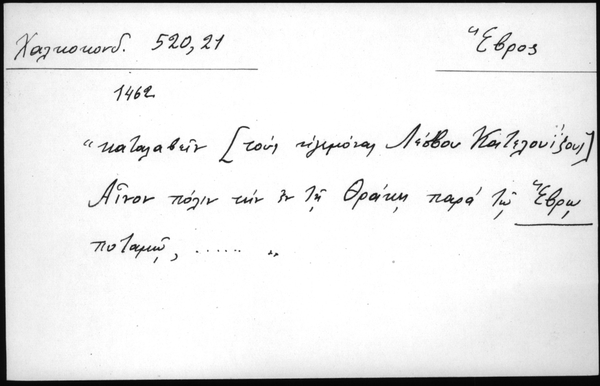 Χαλκοκονδ. 520,21
Ἕβρος
1462
"καταλαβεῖν [τοὺς ἡγεμόνας Λέσβου Κατελουίζους]
Αἶνον πόλιν τὴν ἐν τῇ Θράκῃ παρὰ τῷ Ἕβρῳ
ποταμῷ, ...... "